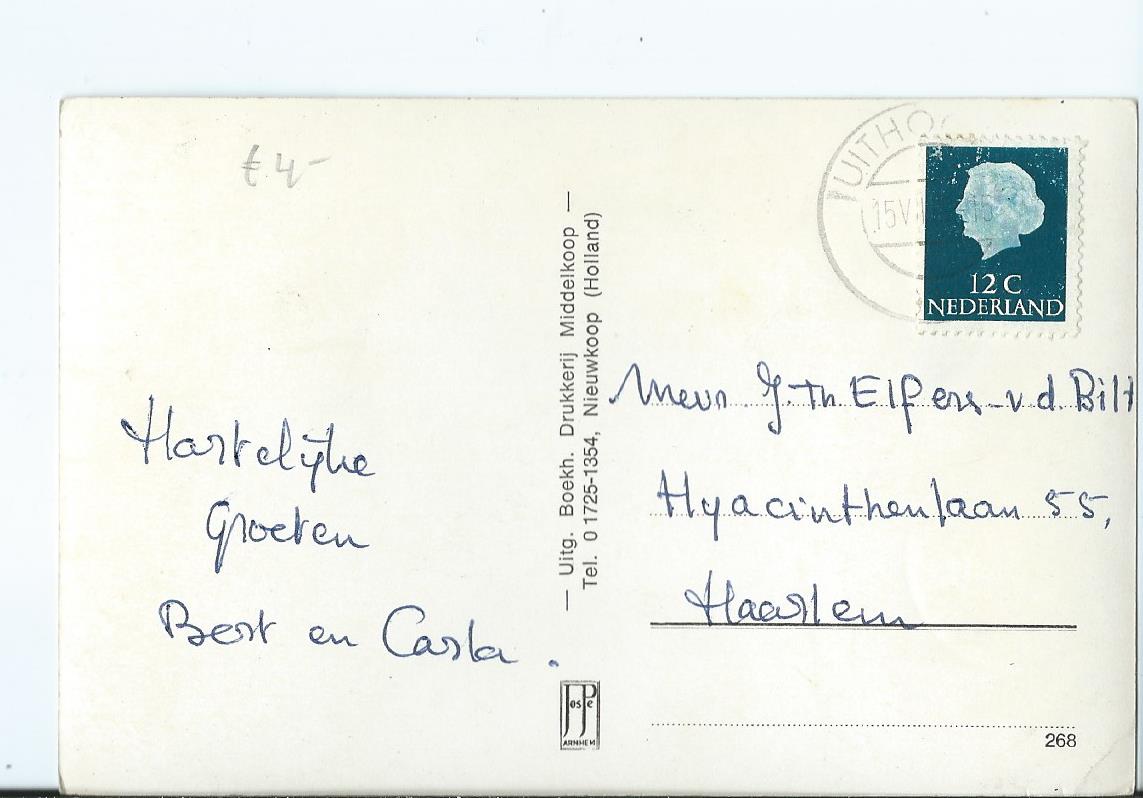 € 4-
Hartelijke
Groeten
Bert en Carla.
— Uitg. Boekh. Drukkerij Middelkoop —
Tel. 01725-1354, Nieuwkoop (Holland)
JosPe
ARNHEM
UITHO
15 V
12 C
NEDERLAND
Mevr J. Th Elfers-v.d. Bilt
Hyacinthenlaan 55,
Haarlem
268